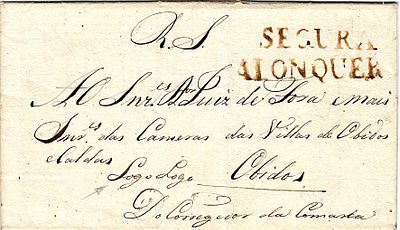 R. S.
SEGURA
ALONQUER
Ao Snr.es Dr Luiz de Fora e mais
Snr.es das Cameras das Villas de Obidos
e Caldas
Logo Logo Obidos
Do Corregedor da Comarca